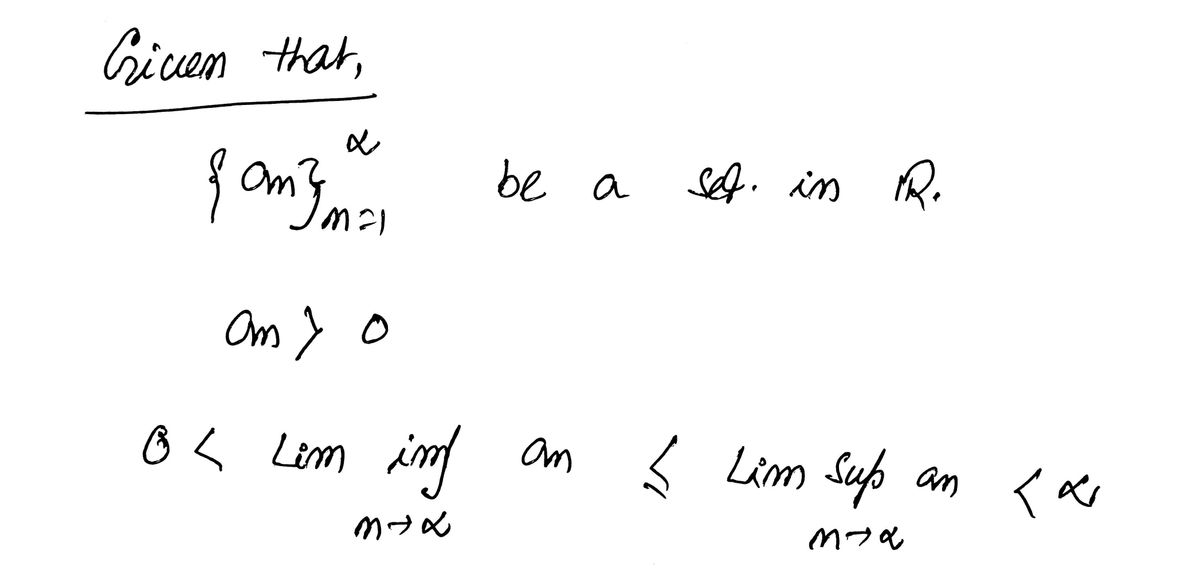 Given that,
{an}∝n=1 be a seq. in R.
an > 0
0 < Lim inf an ≤ Lim sup an < ∝
n→∝ n→∝